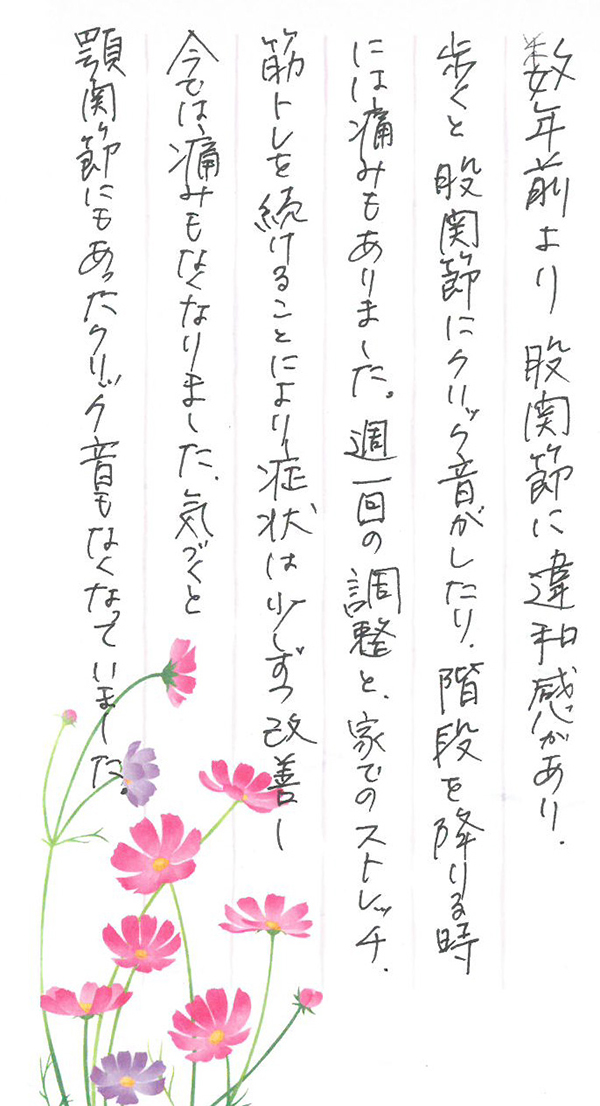 数年前より股関節に違和感があり、
歩くと股関節にクリック音がしたり、階段を降りる時
には痛みもありました。週一回の調整と、家でのストレッチ、
筋トレを続けることにより症状は少しずつ改善し
今では痛みもなくなりました。気づくと
顎関節にもあったクリック音もなくなっていました。